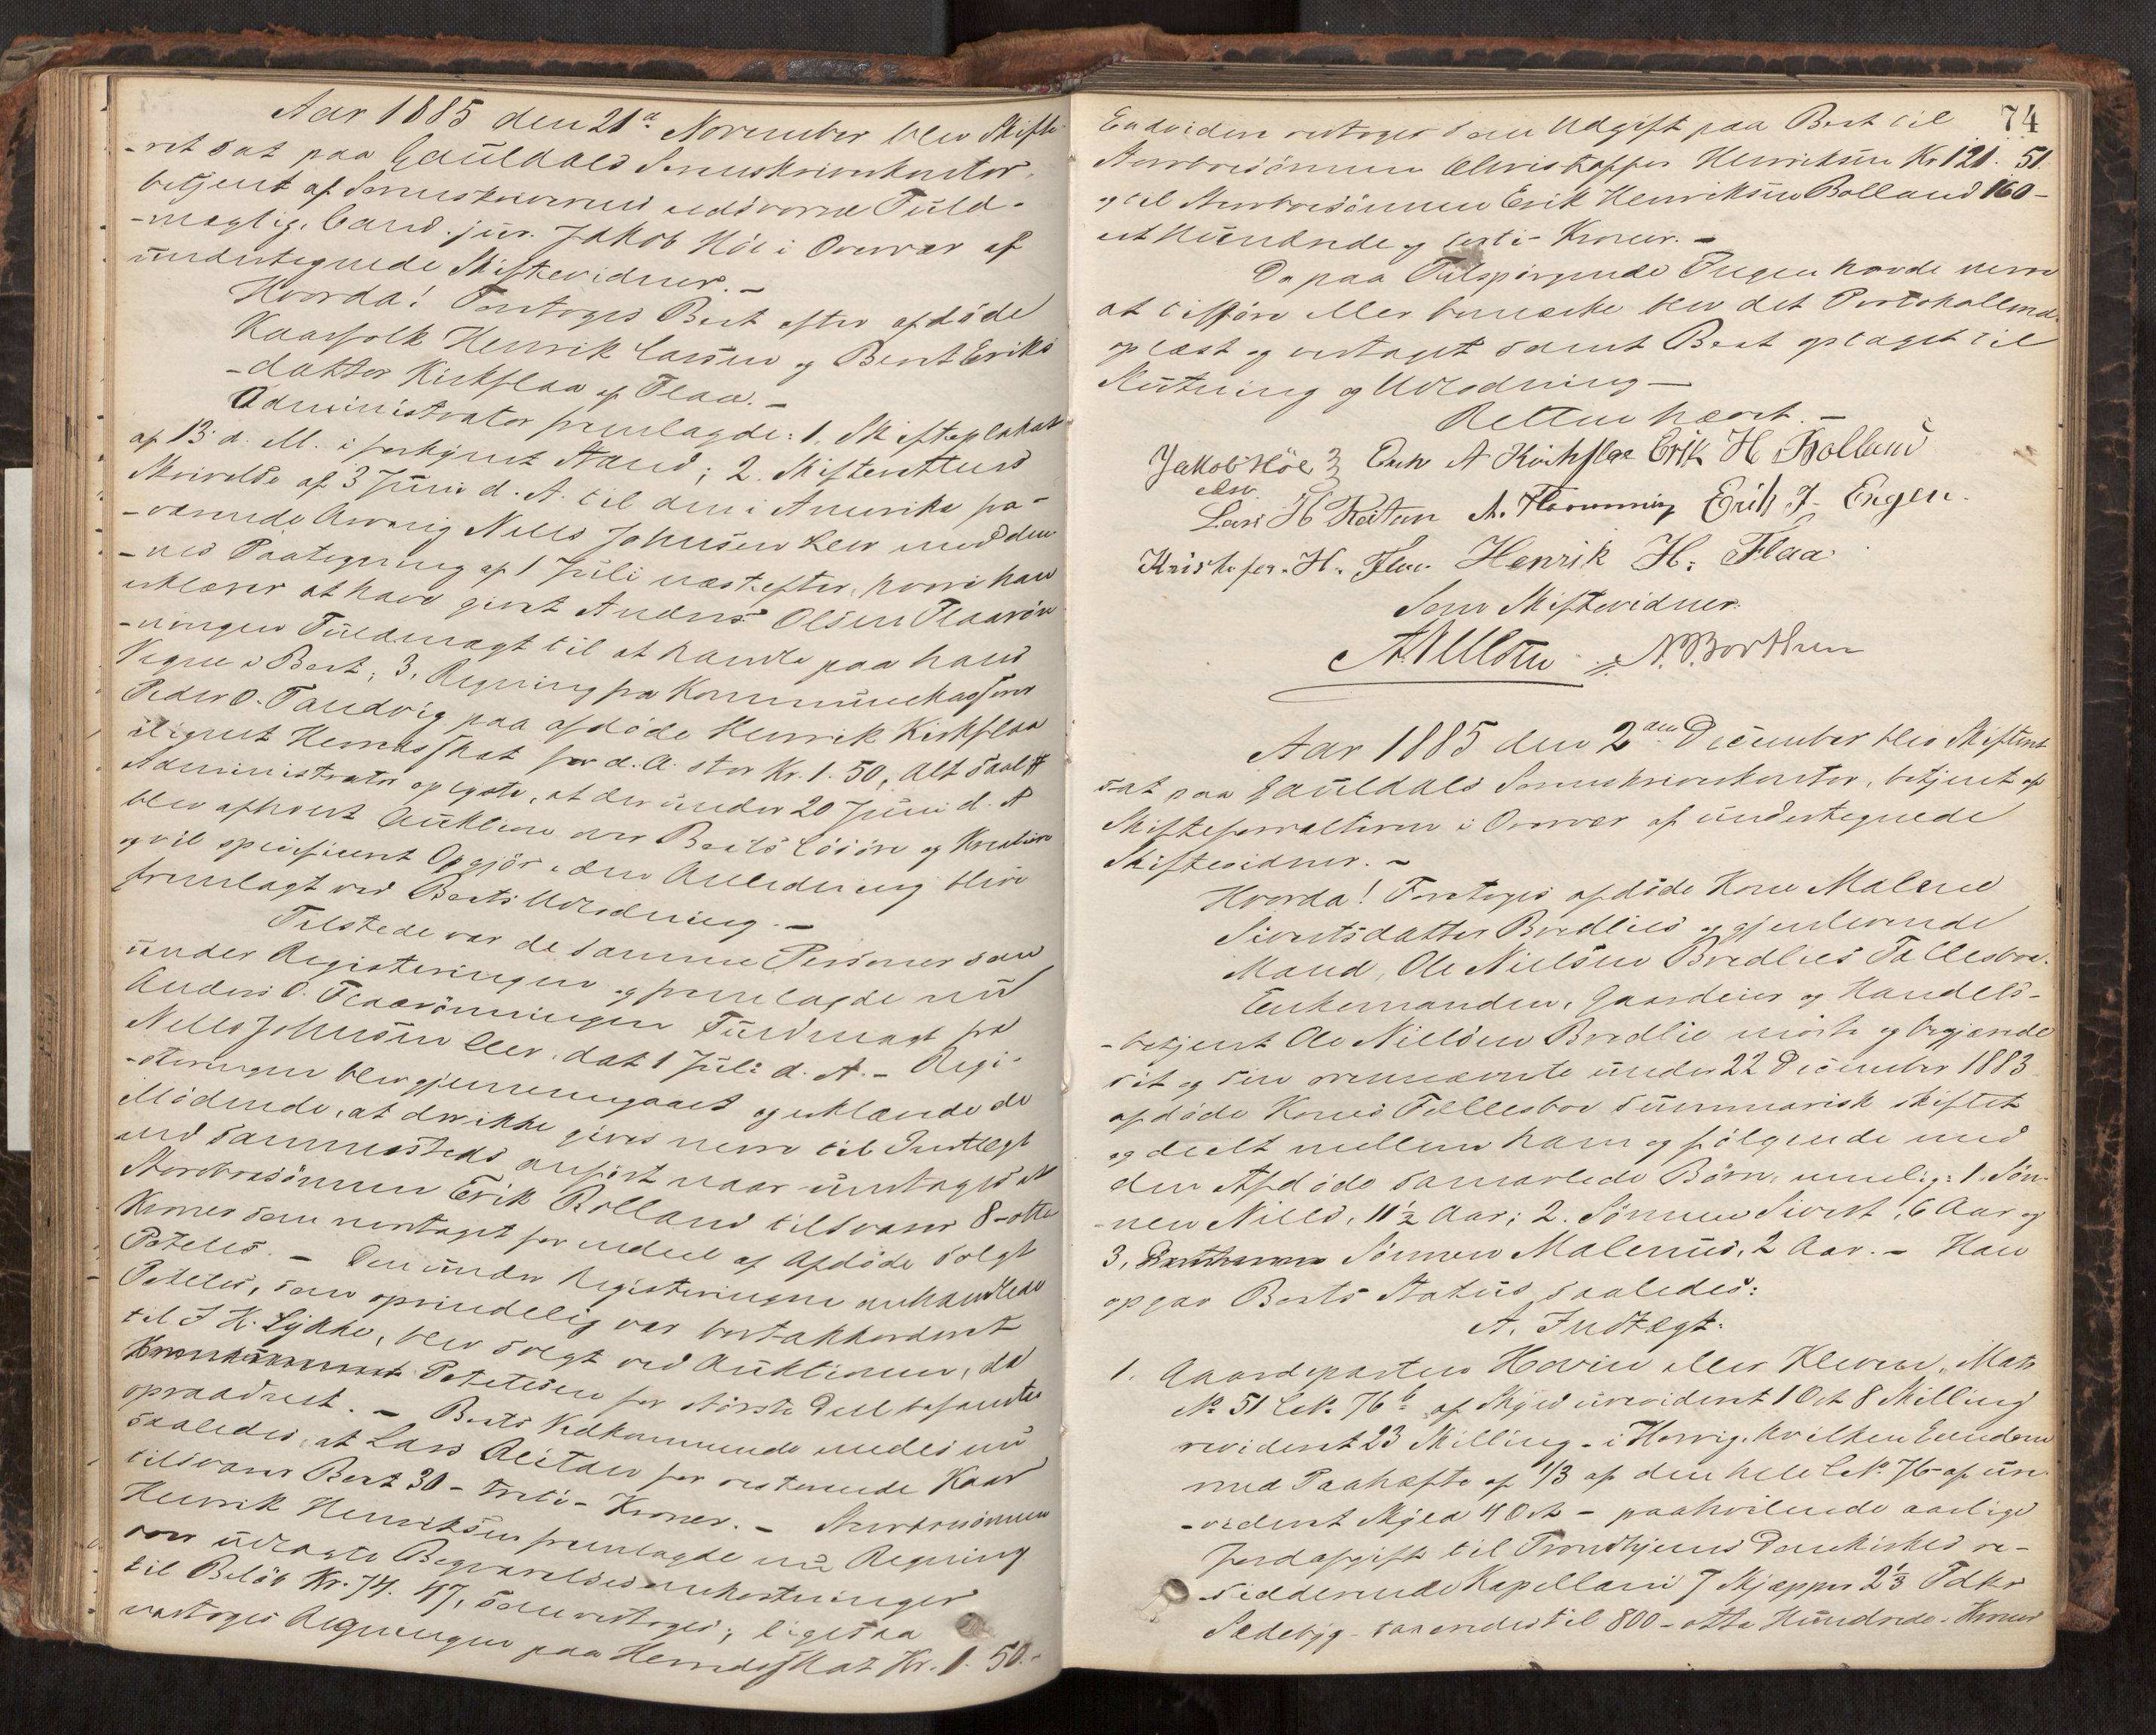 Aar 1885 den 21d. November blev Skifte-
-ret sat paa Gauldals Sorenskriverkontor,
betjent af Sorenskriverens edsvorne Fuld-
-mægtig, Cand. jur. Jakob Höe i Overvær af
undertegnede Skiftevidner. —
Hvorda! Foretoges Boet efter afdöde
Kaarfolk Henrik Larsen og Berit Eriks-
-datter Kirkflaa af Flaa. —
Administrator fremlagde: 1. Skifteplakat
af 13 d. M. i forkyndt Stand; 2. Skifterettens
Skrivelse af 3 Juni d. A. til den i Amerika fra-
-værende Arving Nills Johnsen Leer med den-
-nes Paategning af 1 Juli næstefter, hvori han
erklærer at have givet Anders Olsen Flaarön-
-ningen Fuldmagt til at handle paa hans
Vegne i Boet; 3. Regning fra Kommunekasserer
Peder O. Tandvig paa afdöde Henrik Kirkflaa
ilignet Herredsskat for d. A. stor Kr. 1.50, alt saal #
Administrator oplyste, at der under 20 Juni d. A
blev afholdt Auktion over Boets Lösöre og Kreature
og vil specificeret Opgjör i den Anledning blive
fremlagt ved Boets Udlodning. —
Tilstede var de samme Personer som
under Registeringen og fremlagde nu
Anders O. Flaarönningen Fuldmagt fra
Nills Johnsen Leer, dat 1 Juli d. A. — Regi-
-steringen blev gjennemgaaet og erklærede de
Mödende, at der ikke gives mere til Indtægt
end sammesteds anfört naar undtages at
Stervbosönnen Erik Bolland tilsvarer 8 - otte
Kroner som modtaget for endeel af Afdöde solgt
Potetes. — Den under Registeringen omhandlede
Potetes, som oprindelig var bortakkorderet
til J. H. Lykke, blev solgt ved Auktionen, da
Potetesen for störste Deel befandtes
opraadnet. — Boets Vedkommende enedes nu
saaledes, at Lars Reitan for resterende Kaar
tilsvarer Boet 30 - tretti - Kroner. — Stervbosönnen
Henrik Henriksen fremlagde nu Regning
over udlagte Begravelsesomkostninger
til Belöb Kr. 74. 47, som vedtoges; ligesaa
vedtoges Regningen paa Herredsskat Kr. 1. 50. -
74
Endvidere vedtoges som Udgift paa Boet til
Stervbosönnen Christopher Henriksen Kr 121. 51.
og til Stervbosönnen Erik Henriksen Bolland 160 -
et Hundrede og sexti - Kroner. —
Da paa Tilspörgende Ingen havde mere
at tilföre eller bemærke blev det Protokollerede
oplæst og vedtaget samt Boet optaget til
Slutning og Udlodning —
Retten hævet. —
Jakob Höe Erik A Kirkflaa Erik H Bolland
Lars H Reitan A. Flarönning Erik J. Engen.
Kristofer. H. Flaa Henrik H: Flaa.
Som Skiftevidner:
A. Nillsen N. Borthen
Aar 1885 den 2den December blev Skifteret
sat paa Gauldals Sorenskriverkontor, betjent af
Skifteforvalteren i Overvær af undertegnede
Skiftevidner. —
Hvorda! Foretoges afdöde Kone Malene
Sivertsdatter Bredlies og gjenlevende
Mand, Ole Nielsen Bredlies Fællesbo.
Enkemanden, Gaardeier og Handels-
-betjent Ole Nielsen Bredlie mödte og begjærede
sit og sin ovennævnte under 22 December 1883
afdöde Kones Fællesbo summarisk skiftet
og deelt mellem ham og fölgende med
den Afdöde samavlede Börn, nemlig: 1. Søn-
-nen Nills, 11½ Aar; 2. Sønnen Sivert, 6 Aar og
3, Sønnen Malenus, 2 Aar. — Han
opgav Boets Status saaledes:
A. Indtægt.
1. Gaardparten Hovin eller Kleven, Matr
No 51 LNo 76b af Skyld urevideret 1 Ort 8 Skilling
revideret 23 Skilling - i Horrig, hvilken Eiendom
med Paahæfte af 1/3 af den hele LNo 76 af ure-
-videret Skyld 4 Ort - paahvilende aarlige
Jordafgift til Trondhjems Domkirkes re-
-siderende Kapellani 7 Skjæpper 2⅓ Fdkr
Sædebyg - taxeredes til 800 - otte Hundrede - Kroner